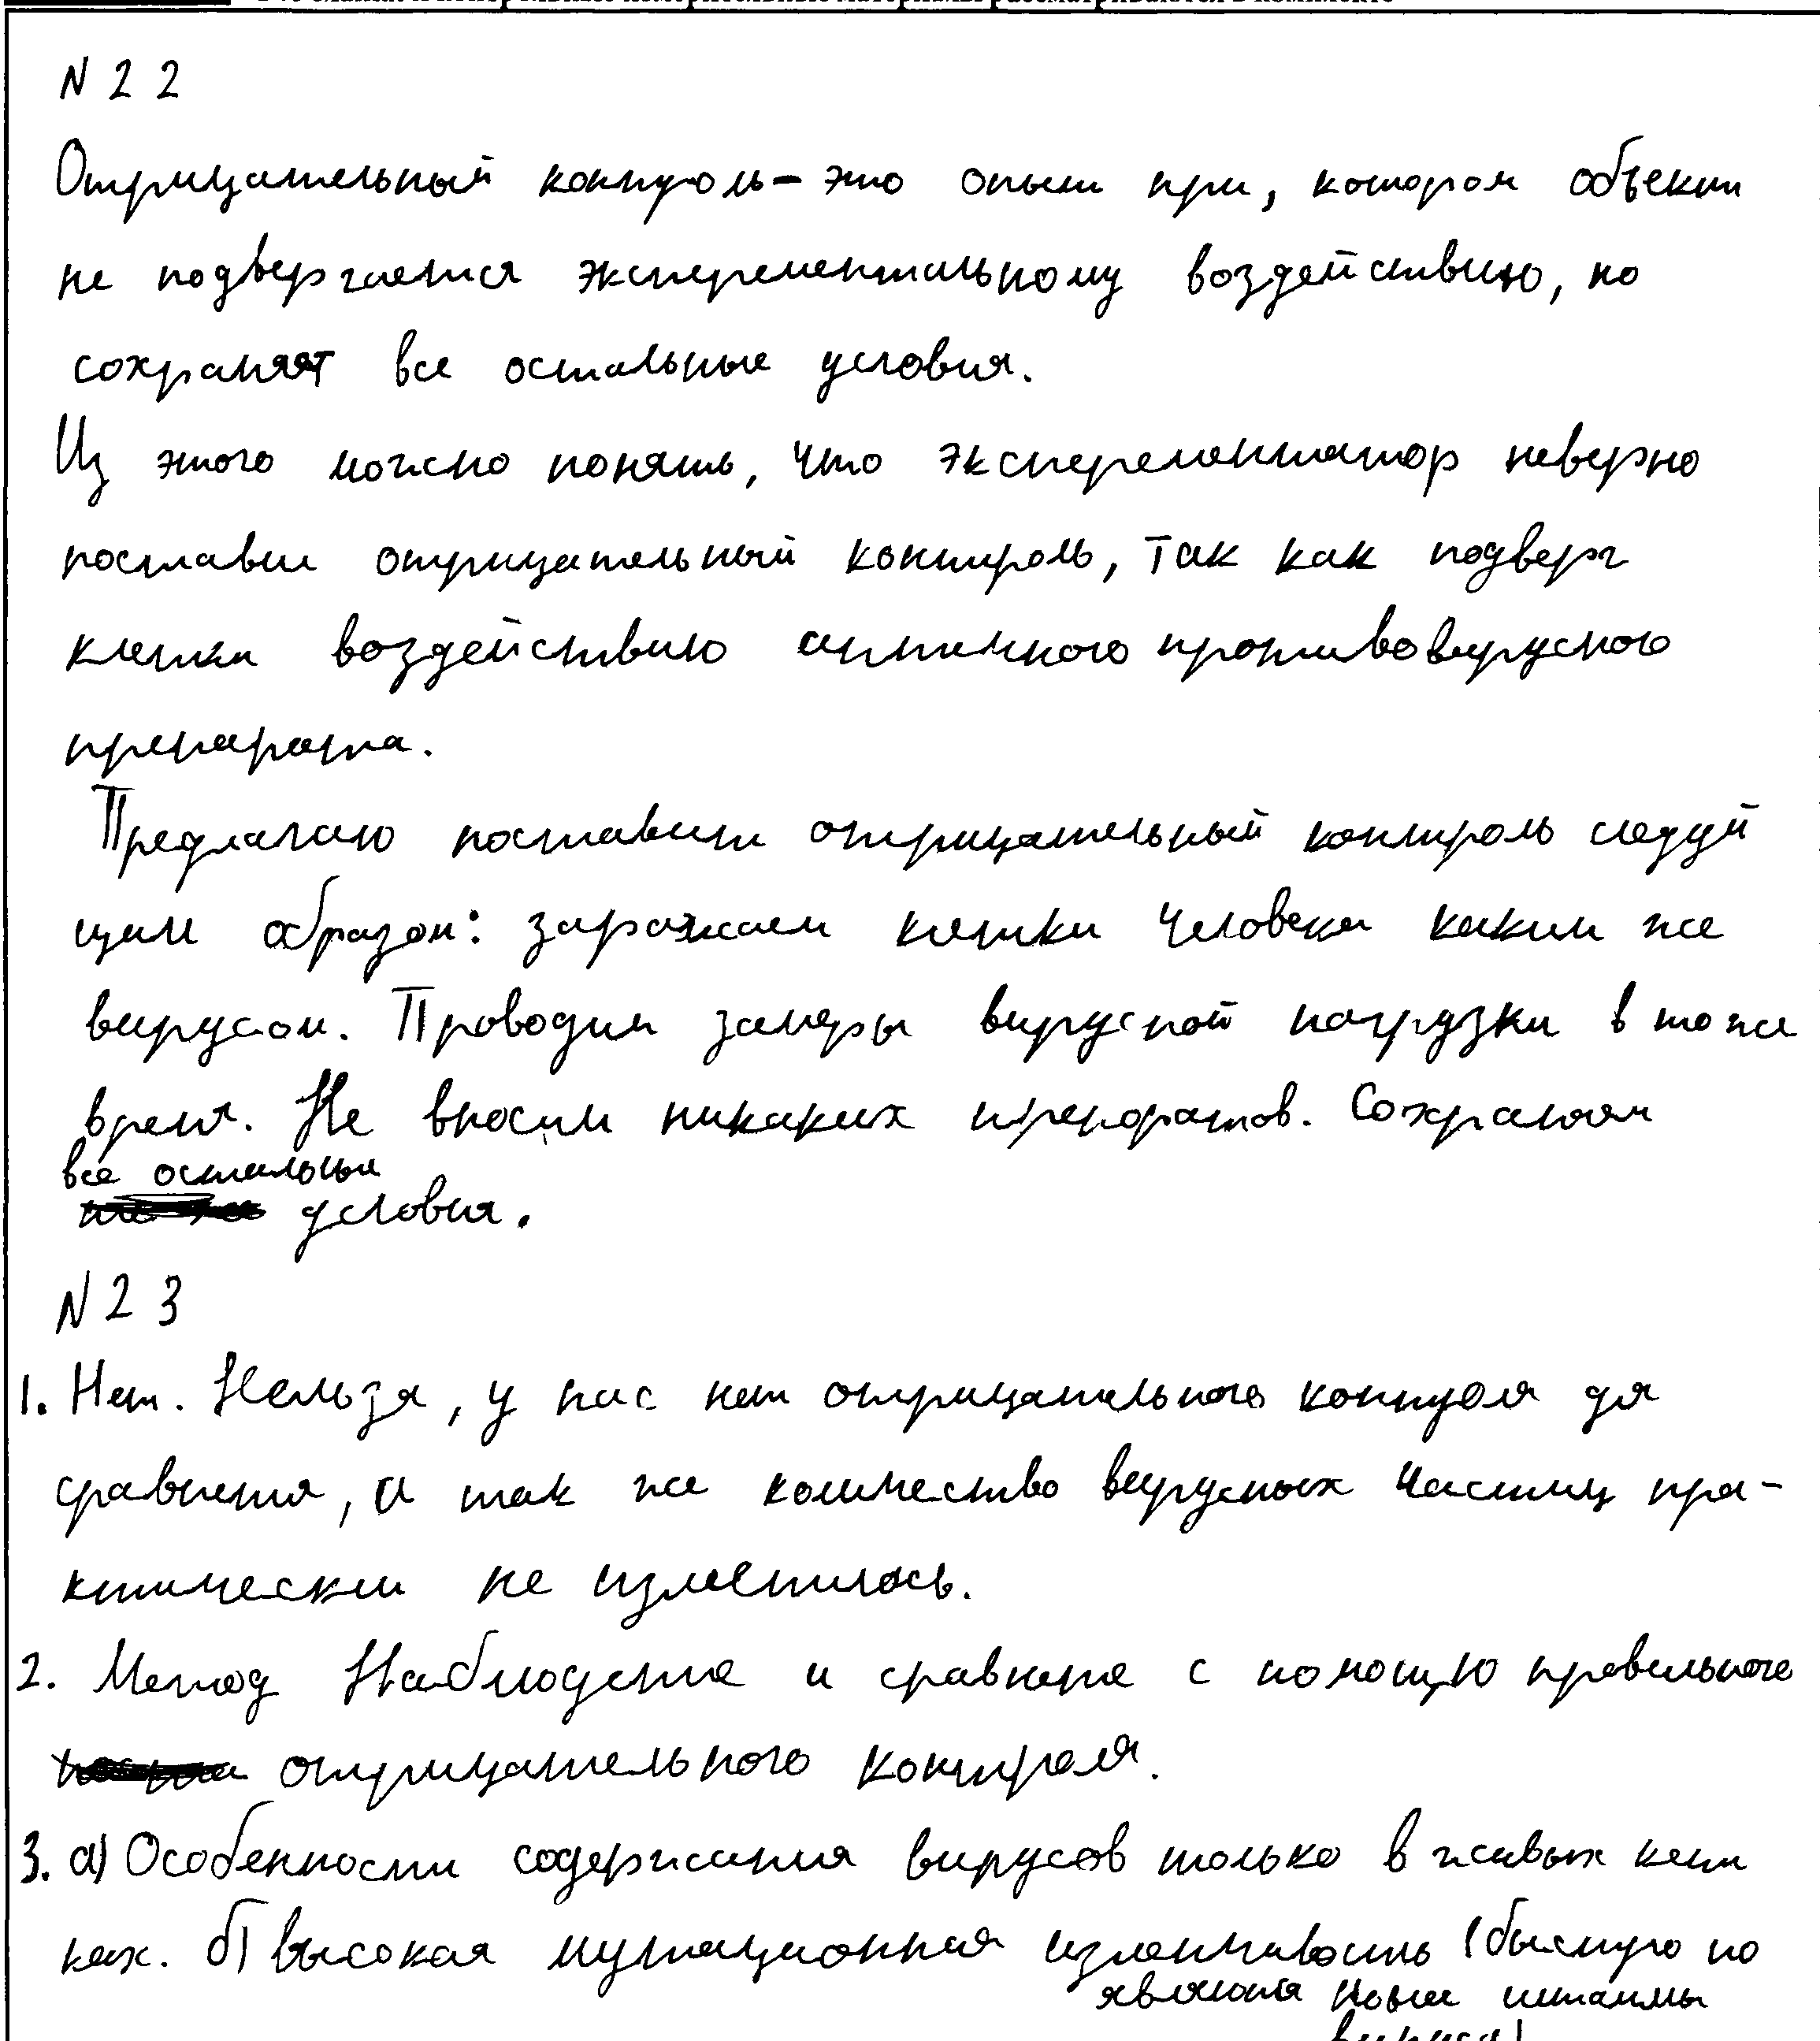 N 22
Отрицательный контроль - это опыт при, котором объект
не подвергается эксперементальному воздействию, но
сохраняят все остальные условия.
Из этого можно понять, что эксперементатор неверно
поставил отрицательный контроль, так как подверг
клетки воздействию антипротивовирусного
препарата.
Предлагаю поставить отрицательный контроль следую
щим образом: заражаем клетки человека каким же
вирусом. Проводим замеры вирусной нагрузки в то же
время. Не вносим никаких препоратов. Сохраняем
все остальные
условия.
N 23
1. Нет. Нельзя, у нас нет отрицательного контроля для
сравнения, а так же количество вирусных частиц пра-
ктически не изменилось.
2. Метод Наблюдения и сравнение с помощью правильного
отрицательного контроля.
3. а) Особенности содержания вирусов только в живых клет
ках. б) высокая мутационная изменчивость (быстро по
являются новые штаммы
вируса)